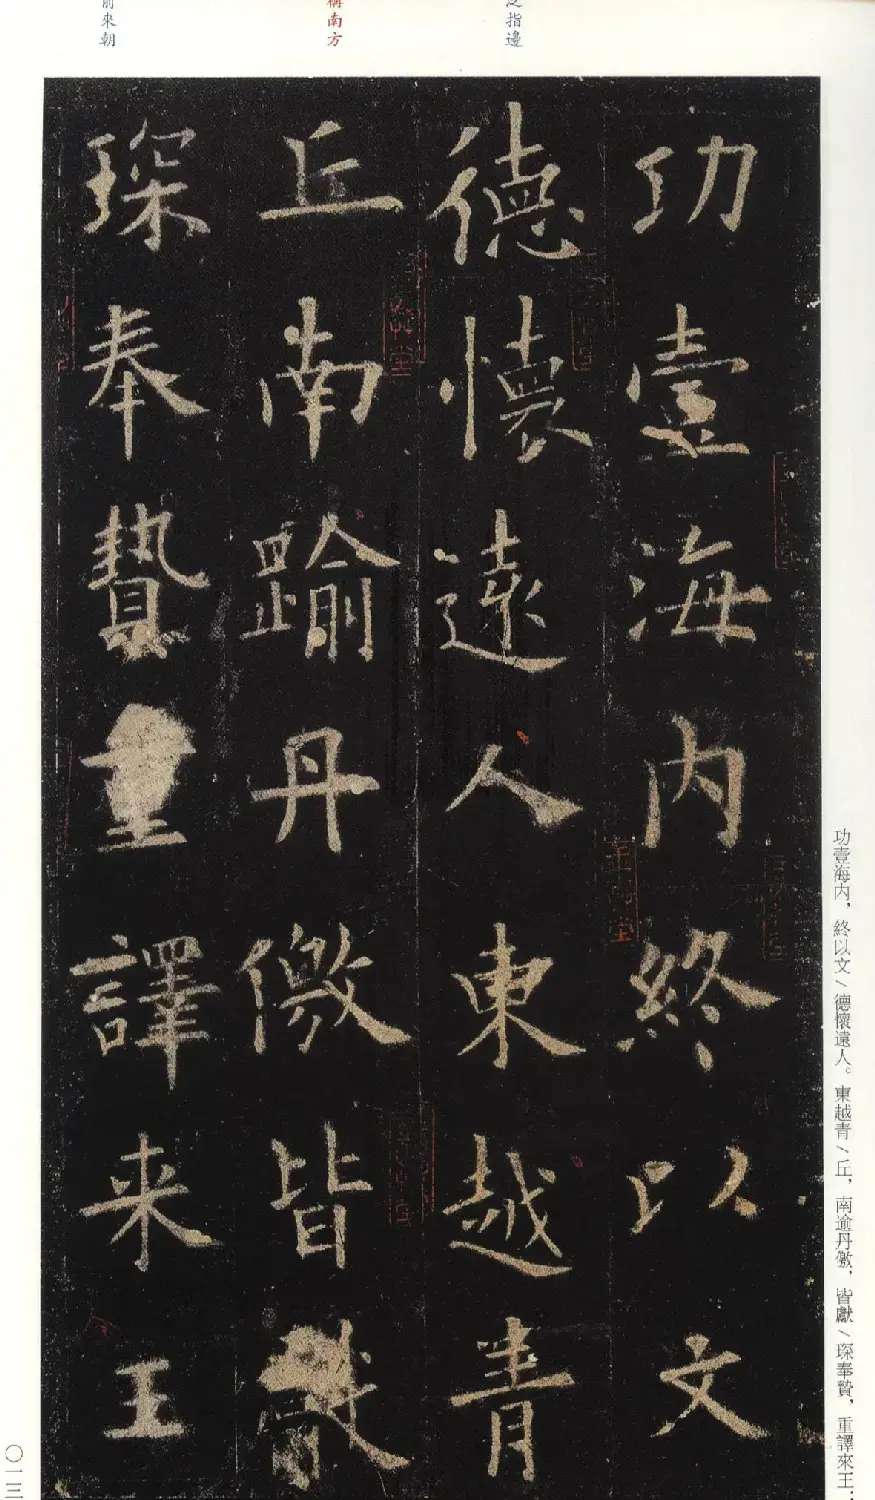 功壹海内，終以文／德懷遠人。東越青／丘，南逾丹徼，皆獻／琛奉贄，重譯來王，
指邊
南方
來朝
功壹海内終以文
德懷遠人東越青
丘南踰丹徼皆獻
琛奉贄重譯来王
〇一三